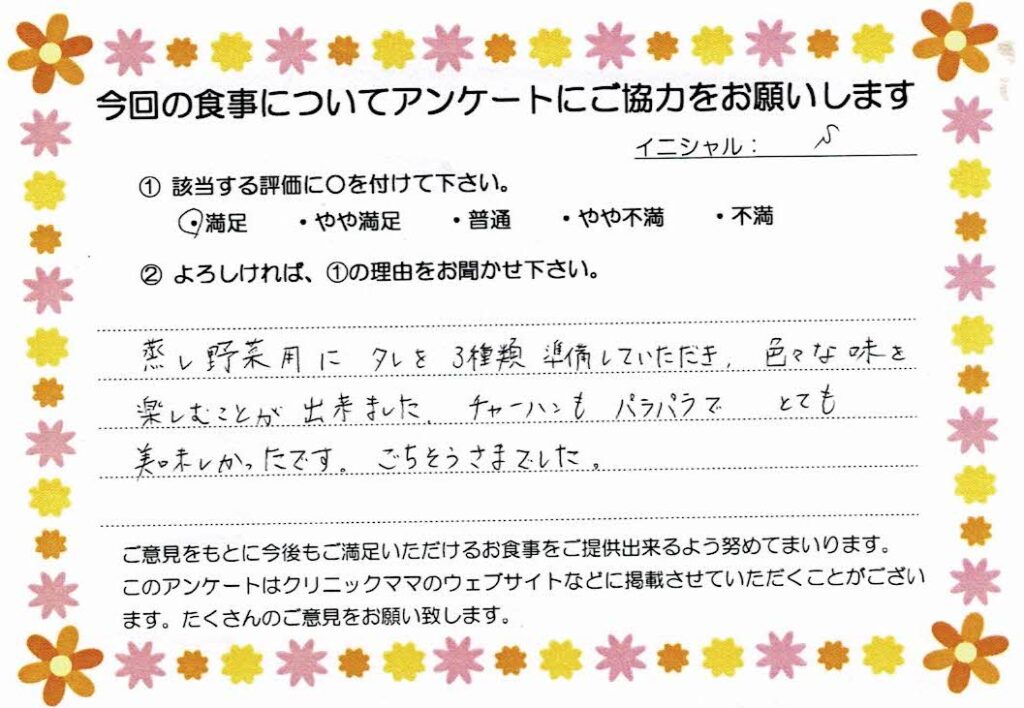 今回の食事についてアンケートにご協力をお願いします
イニシャル：
① 該当する評価に〇を付けて下さい。
・満足 ・やや満足 ・普通 ・やや不満 ・不満
② よろしければ、①の理由をお聞かせ下さい。
蒸し野菜用に タレを 3種類 準備していただき、色々な味を
楽しむことが 出来ました。チャーハンも パラパラで とても
美味しかったです。ごちそうさまでした。
ご意見をもとに今後もご満足いただけるお食事をご提供出来るよう努めてまいります。
このアンケートはクリニックママのウェブサイトなどに掲載させていただくことがござい
ます。たくさんのご意見をお願い致します。